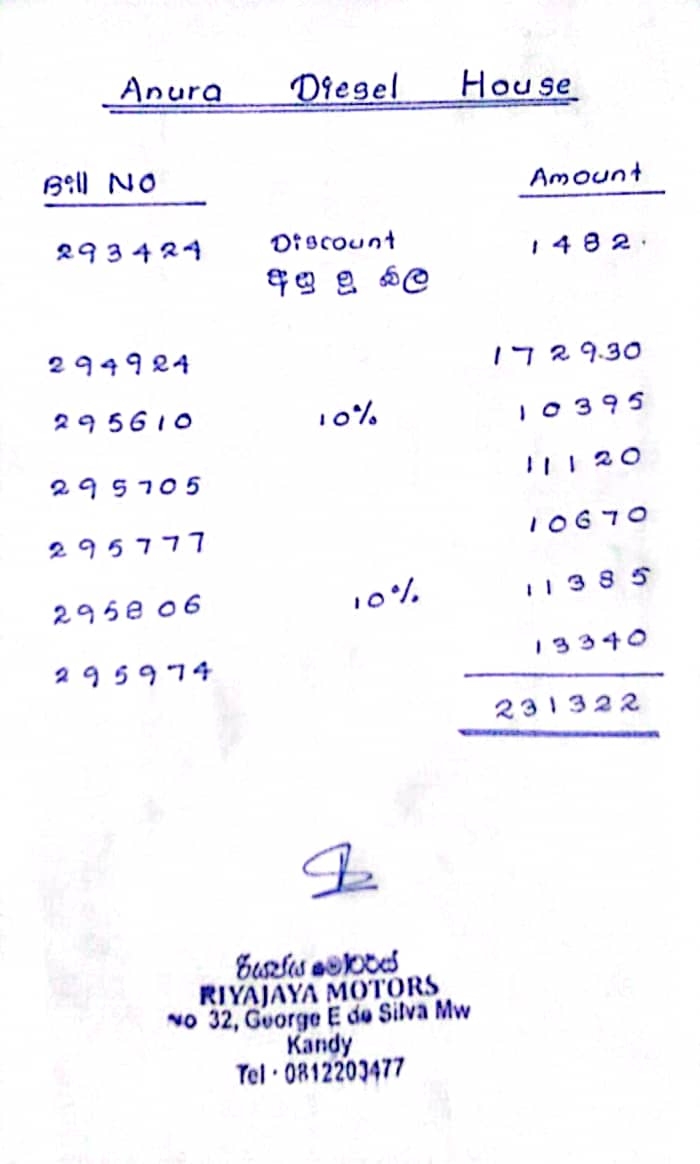 Anura Diesel House
Bill No Amount
293424 Discount 1482.
අසු වූ බිල
294924 1729.30
295610 10% 10395
295705 11120
295777 10670
295806 10% 11385
295974 13340
231322
RIYAJAYA MOTORS
No 32, George E de Silva Mw
Kandy
Tel · 0812203477